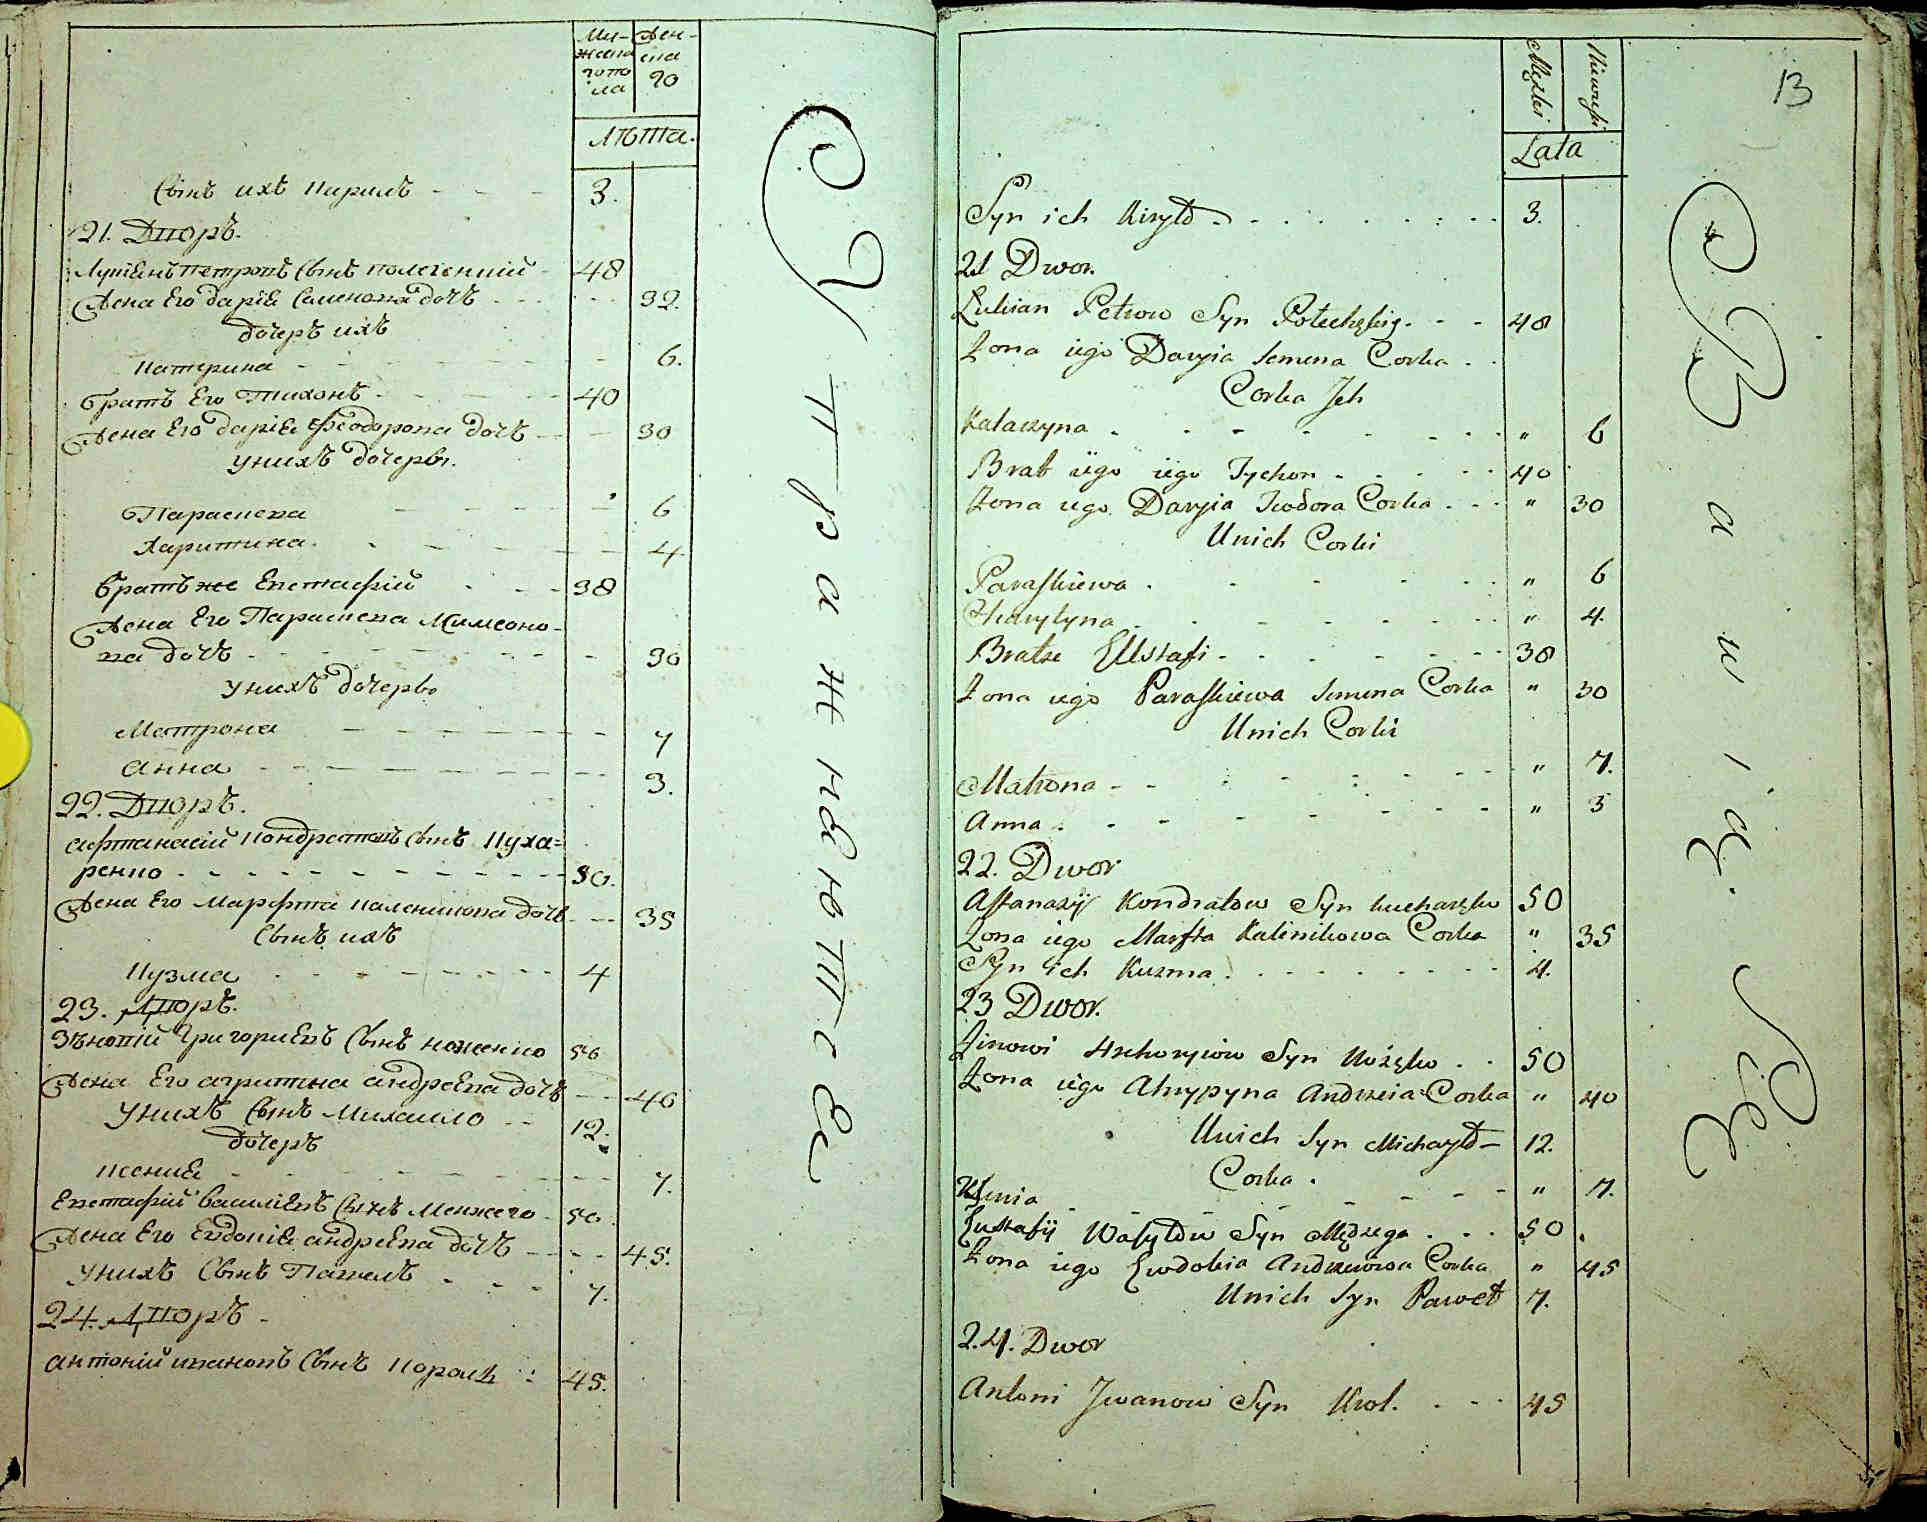 Му-
жеска
го по
ла
Жен-
ска
го
Лѣта.
Сынъ ихъ Кирилъ - - - 3.
21. Дворъ.
Лукіянъ петровъ Сынъ 48
Жена Его дарія Семенова дочь - - - 32.
дочерь ихъ
Катерина - - - 6.
братъ Его тихонъ - - - 40
Жена Его дарія Феодорова дочь - - 30
у нихъ дочеры.
Параскева - - - 6
Харитина. - - - 4
братъ же Евстафій - - - 38
Жена Его Параскева Симеоно-
ва дочь - - - 30
у нихъ дочерѣ
Матрона - - - 7
анна - - - 3.
22. Дворъ.
афтанасій Кондратовъ Сынъ Куха=
ренко - - - 50.
Жена Его Марфта Каленикова дочь - - 35
Сынъ ихъ
Кузма - - - 4
23. Дворъ.
Зѣновій Григориевъ Сынъ 50
Жена Его агрипина андреева дочь - - 40
у нихъ Сынъ Михаило - - 12.
дочерь
Ксения - - - 7.
Евстафій василіевъ Сынъ 50.
Жена Его Евдокія андреева дочь - - - 45.
у нихъ Сынъ Павелъ - - - 7.
24. Дворъ -
антоній ивановъ Сынъ 45.
У пражнѣютсе
13
Męzkei
Niewiesk.
Lata
Syn ich Kiryło - - - 3.
21 Dwor.
Łukian Petrow Syn - - - 48
Żona iego Daryia Semena Corka - -
Corka Jch
Katarzyna - - - " 6
Brat iego iego Tychon - - - 40
Żona iego Daryia Teodora Corka - - - " 30
Unich Corki
Paraskiewa - - - " 6
Charytyna - - - " 4.
Bratże Eustafi - - - 38
Żona iego Paraskiewa Semena Corka " 30
Unich Corki
Matrona - - - " 7.
Anna - - - " 3
22. Dwor
Aftanaziy Kondratow Syn Kucharęko 50
Żona iego Marfta Kalinikowa Corka " 35
Syn ich Kuzma - - - 4.
23 Dwor.
Zinowi Hrehoryiow Syn - - 50
Żona iego Ahrypyna Andrzeia Corka " 40
Unich Syn Michayło - 12.
Corka.
Xenia - - - " 7.
Eustafii Wasylow Syn - - - 50.
Żona iego Ewdokia Andrzeiowa Corka " 45
Unich Syn Paweł 7.
24. Dwor
Antoni Jwanow Syn Krol. - - - 45
Bawią Się